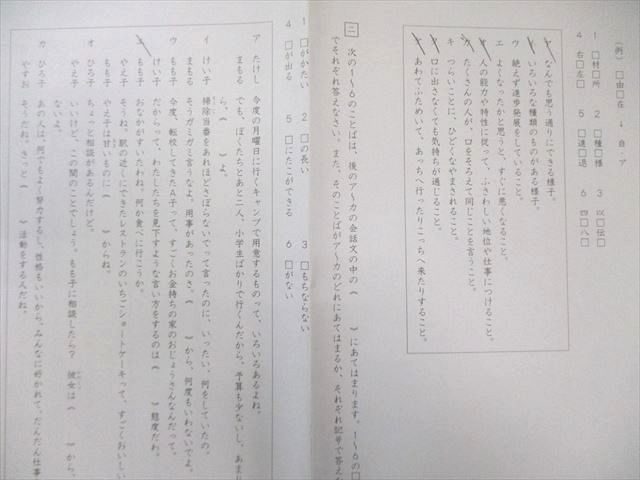 (例) □由□在 → 自・ア
1 □材□所
2 □種□様
3 以□伝□
4 右□左□
5 □進□退
6 四□八□
ア なんでも思う通りにできる様子。
イ いろいろな種類のものがある様子。
ウ 絶えず進歩発展をしていること。
エ よくなったかと思うと、すぐに悪くなること。
オ 人の能力や特性に従って、ふさわしい地位や仕事につけること。
たくさんの人が、口をそろえて同じことを言うこと。
つらいことに、ひどくなやまされること。
口に出さなくても気持ちが通じること。
あわてふためいて、あっちへ行ったりこっちへ来たりすること。
二 次の1〜6のことばは、後のア〜カの会話文の中の( )にあてはまります。1〜6の□
でそれぞれ答えなさい。また、そのことばがア〜カのどれにあてはまるか、それぞれ記号で答えな
1 □がかたい
2 □の長い
3 □もちならない
4 □が出る
5 □にたこができる
6 □がない
ア たけし 今度の月曜日に行くキャンプで用意するものって、いろいろあるよね。
まもる でも、ぼくたちとあと二人、小学生ばかりで行くんだから、予算も少ないし、あまり
ら、( )よ。
イ けい子 掃除当番をあれほどさぼらないでって言ったのに、いったい、何をしていたの。
まもる そうガミガミ言うなよ。用事があったのさ。( )から、何度もいわないでよ。
ウ もも子 今度、転校してきたA子って、すごくお金持ちの家のおじょうさんなんだって。
けい子 だからって、わたしたちを見下すような言い方をするのは( )態度だわ。
エ もも子 おなかがすいたわね。何か食べに行こうか。
やえ子 そうね。駅の近くにできたレストランのいちごショートケーキって、すごくおいしい
もも子 やえ子は甘いものに( )からね。
オ ひろ子 ちょっと相談があるんだけど。
やえ子 いいけど、この間のことでしょう。もも子に相談したら? 彼女は( )から、
ないよ。
カ ひろ子 あの人は、何でもよく努力するし、性格もいいから、みんなに好かれて、だんだん仕事
やすお そうだね。きっと( )活動をする人だね。